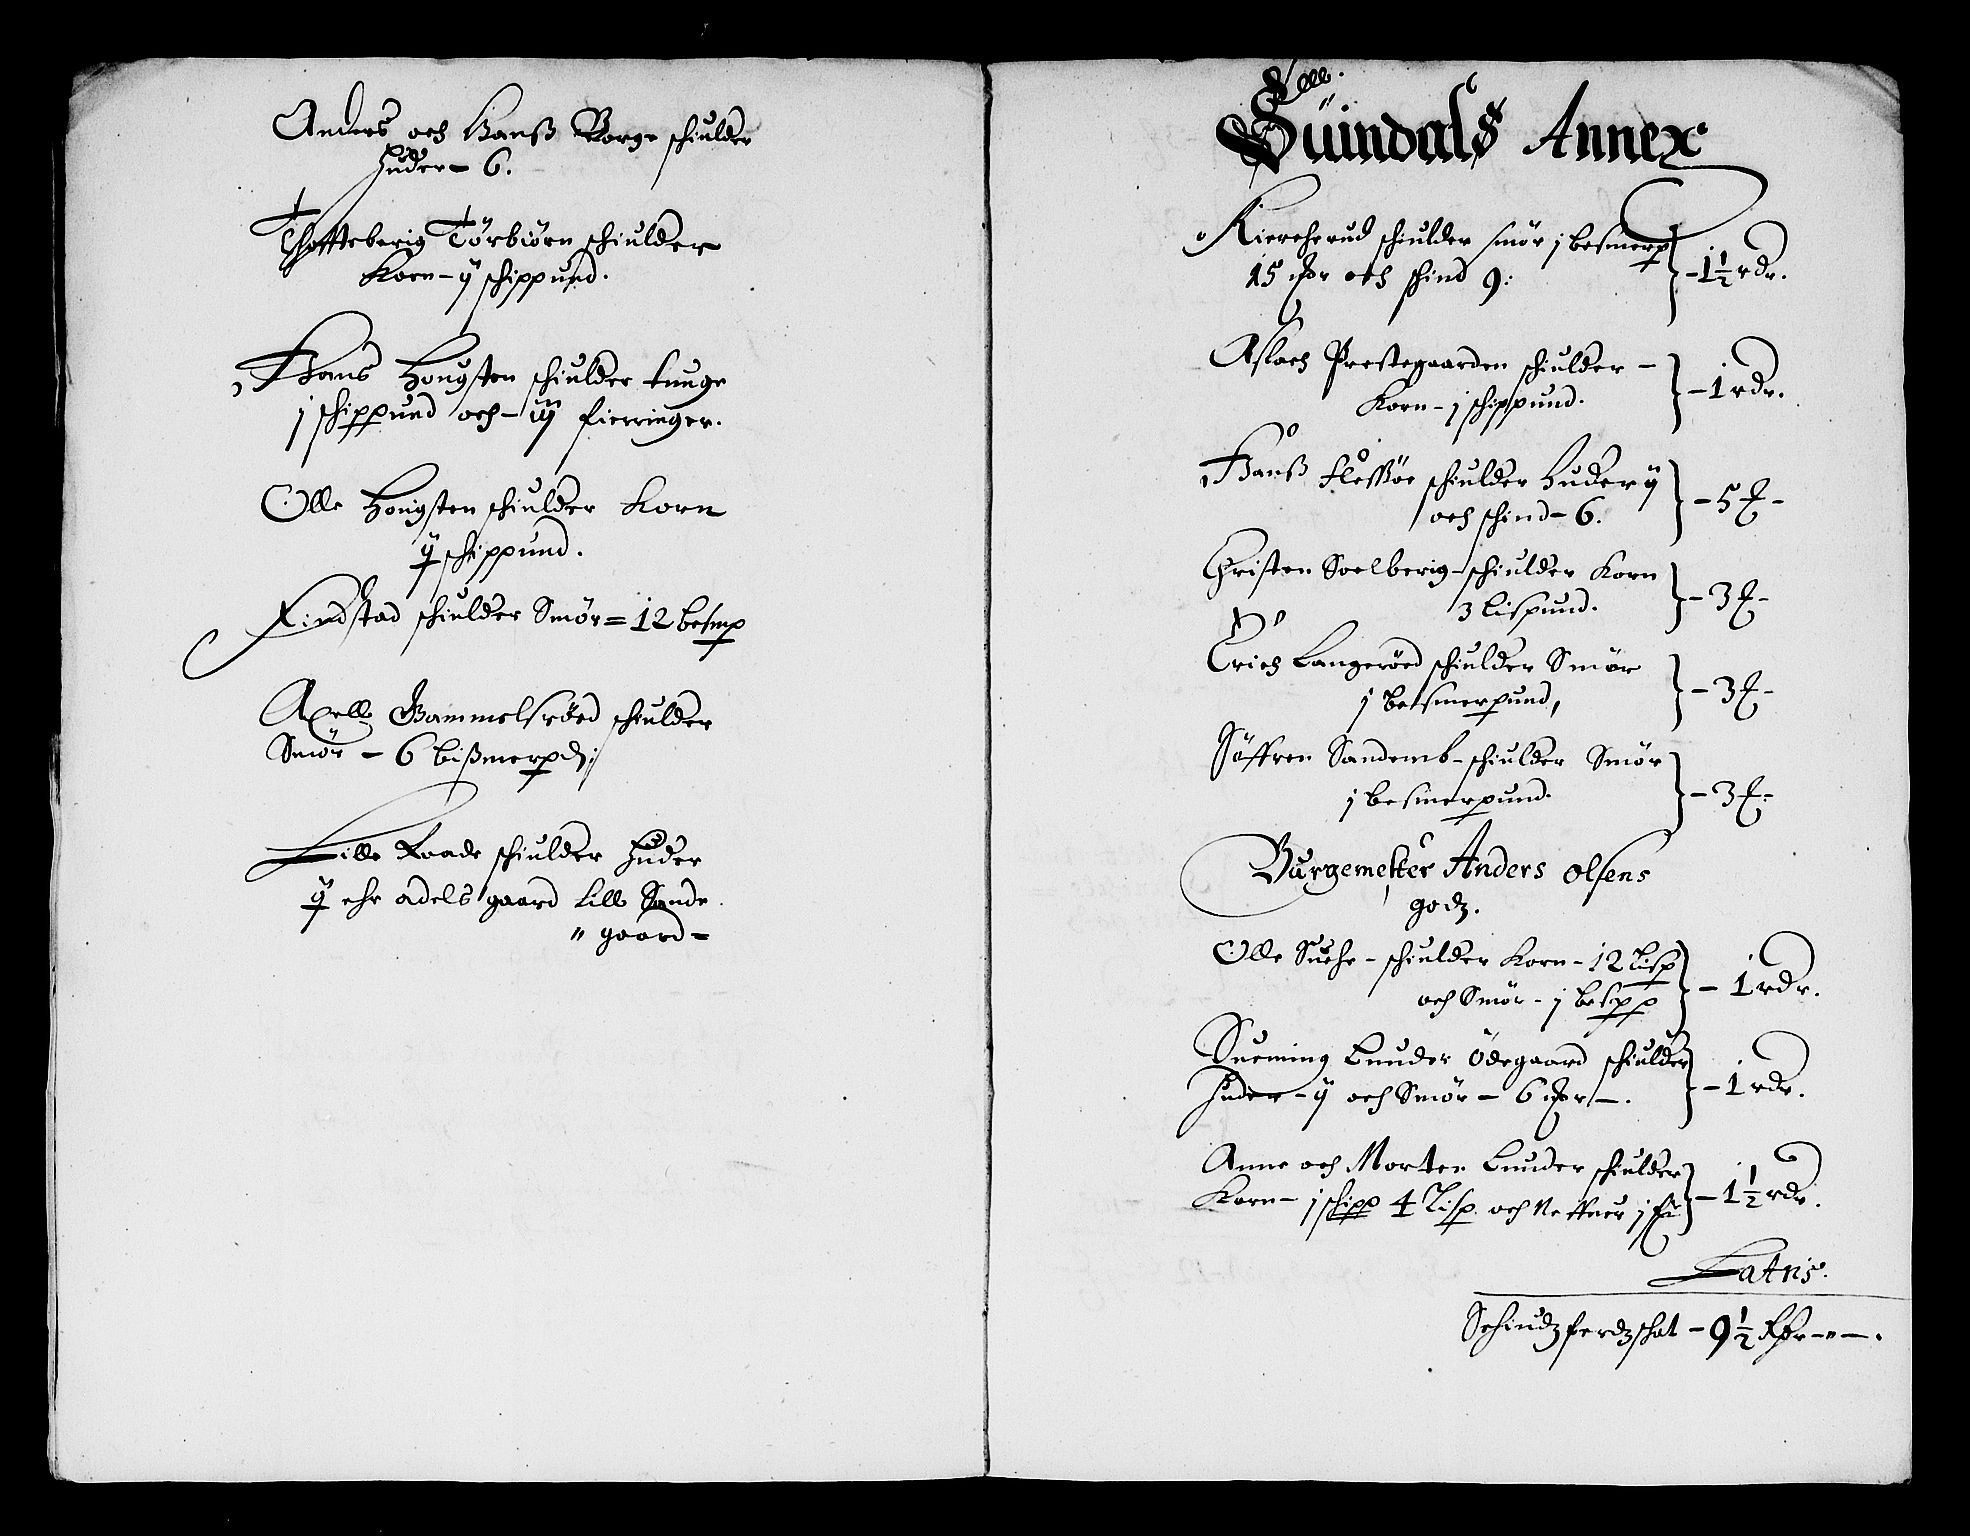 Anders och Hanß Borge schiulder
Huder - 6.
Thofteberig Törbiörn schiulder
Korn - ij schippund.
Hans Hougsten schiulder tunge
j schippund och - iij fierringer.
Olle Hougsten schiulder Korn
ij schippund.
Findstad schiulder Smör = 12 besmp
Axell Gammelsröed schiulder
Smör - 6 bißmerpd:
Lille Raade schiulder Huder
ij ehr adels gaard Lille Sande
" gaard =
Suindals Annex
Kiercherud schiulder smör j besmerp
15 for och schind 9: - 1½ rdr.
Aslach Prestegaarden schiulder -
Korn - j schippund. - 1 rdr.
Hanß Flessöe schiulder Huder ij
och schind - 6. - 5 ƶ -
Christen Soelberig - schiulder Korn
3 Lispund. - 3 ƶ -
Erich Langeröed schiulder Smör
j besmerpund, - 3 ƶ -
Söffren Sandemb - schiulder Smör
j besmerpund. - 3 ƶ -
Burgemester Anders Olsens
godz.
Olle Suehe - schiulder Korn - 12 Lisp
och Smör - j bespp - 1 rdr.
Sueming Lunder Ödegaard schiulder
Huder - ij och Smör - 6 for -. - 1 rdr.
Anne och Morten Lunder schiulder
Korn - j schipp 4 Lisp och Netttuer j - 1½ rdr.
Latris.
Schiudzferdzschat - 9½ Rdr - " -.